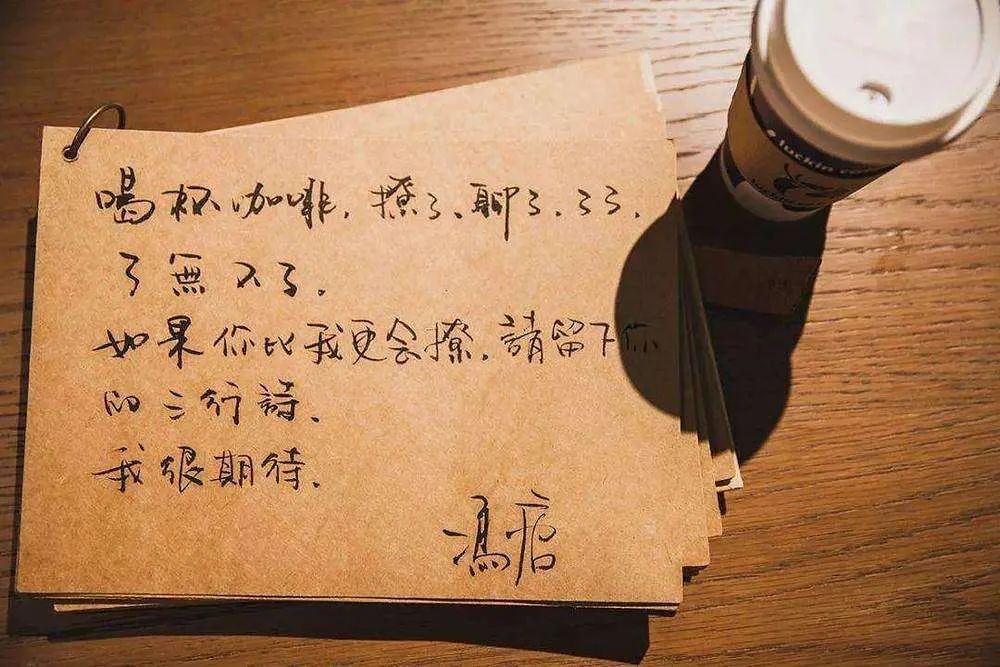 喝杯咖啡，撩了、聊了、了了，
了無不了。
如果你比我更会撩，請留下你
的三行詩。
我很期待。
馮唐
luckin coffee